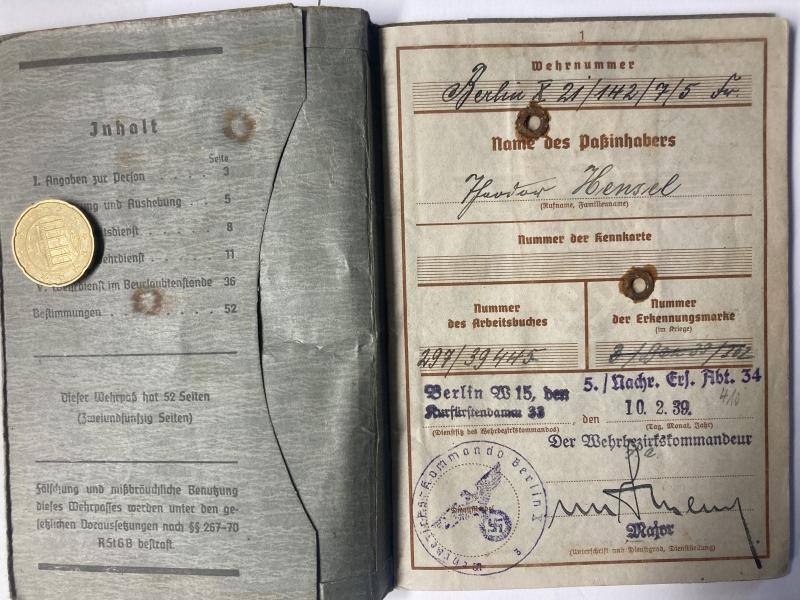 Inhalt
Seite
I. Angaben zur Person . . . . . 3
und Aushebung . . 5
dienst . . . . . 8
dienst . . . . . 11
V. Wehrdienst im Beurlaubtenstande 36
Bestimmungen . . . . . . . . 52
Dieser Wehrpaß hat 52 Seiten
(Zweiundfünfzig Seiten)
Fälschung und mißbräuchliche Benutzung
dieses Wehrpasses werden unter den ge-
setzlichen Voraussetzungen nach §§ 267–70
RStGB bestraft.
1
Wehrnummer
Berlin X 21/142/7/5 Fr.
Name des Paßinhabers
Theodor Hensel
(Rufname, Familienname)
Nummer der Kennkarte
Nummer
des Arbeitsbuches
Nummer
der Erkennungsmarke
(im Kriege)
297/39445
Berlin W 15, den
5./Nachr. Ers. Abt. 34
Kurfürstendamm 33
, den
10. 2. 39.
(Dienstsitz des Wehrbezirkskommandos)
(Tag, Monat, Jahr)
Der Wehrbezirkskommandeur
Kommando Berlin X
Major
(Unterschrift und Dienstgrad, Dienststellung)